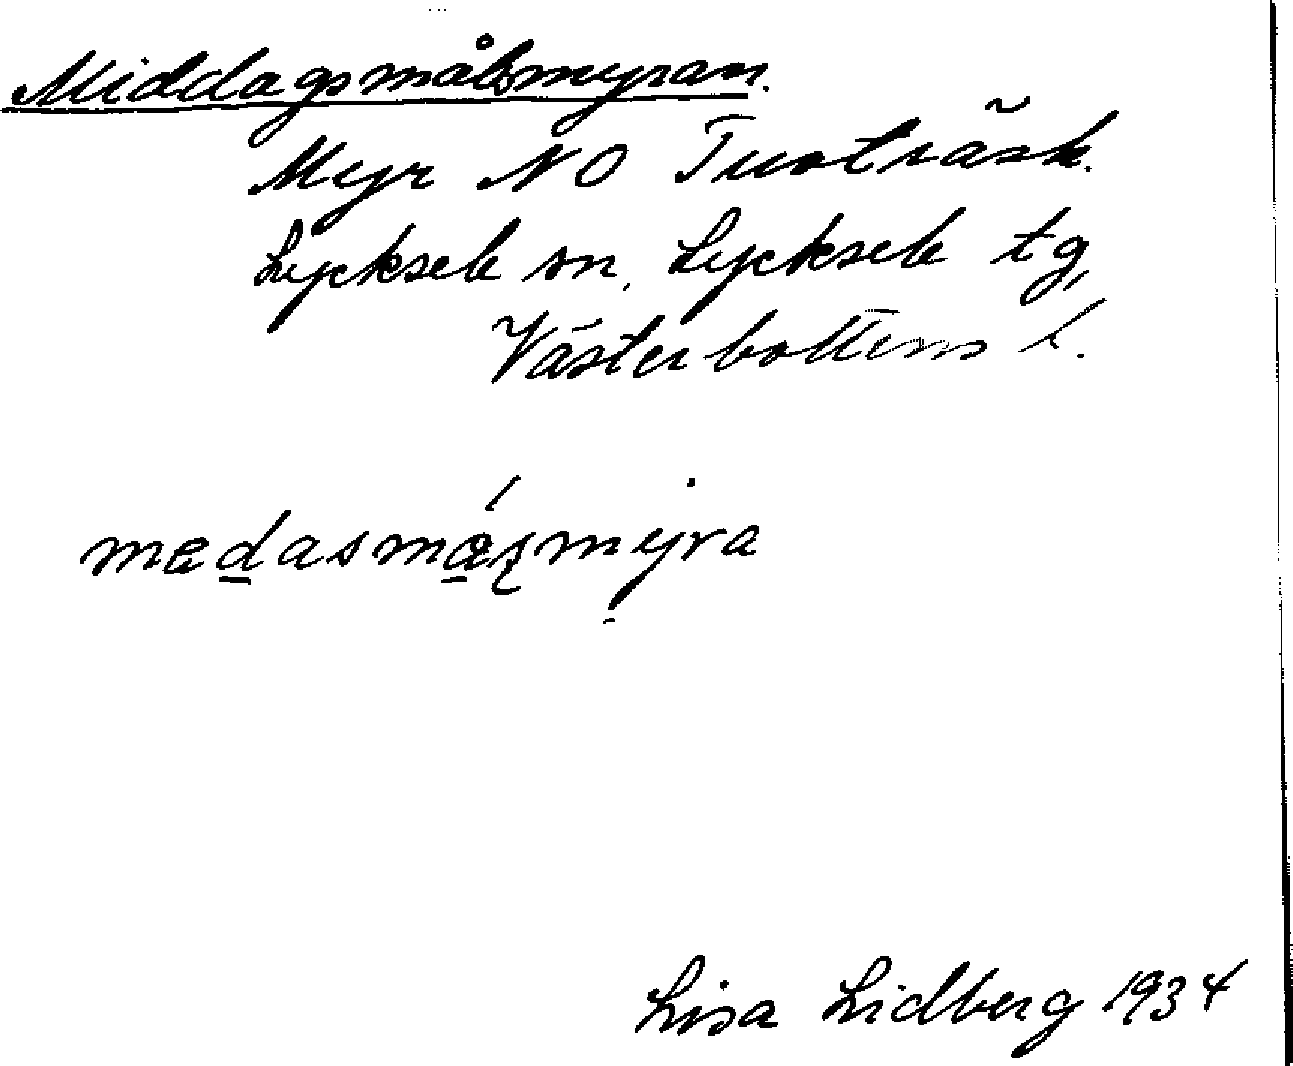 Middagsmålsmyran.
Myr NO Tuvträsk.
Lycksele sn, Lycksele tg,
Västerbottens l.
Lisa Lidberg 1934